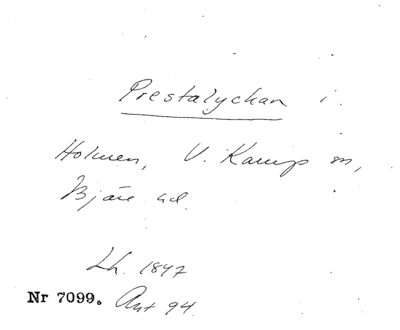 Prestalyckan i
Holmen, V. Karup sn,
Bjäre hd.
Lh. 1847
Nr 7099. Akt 94